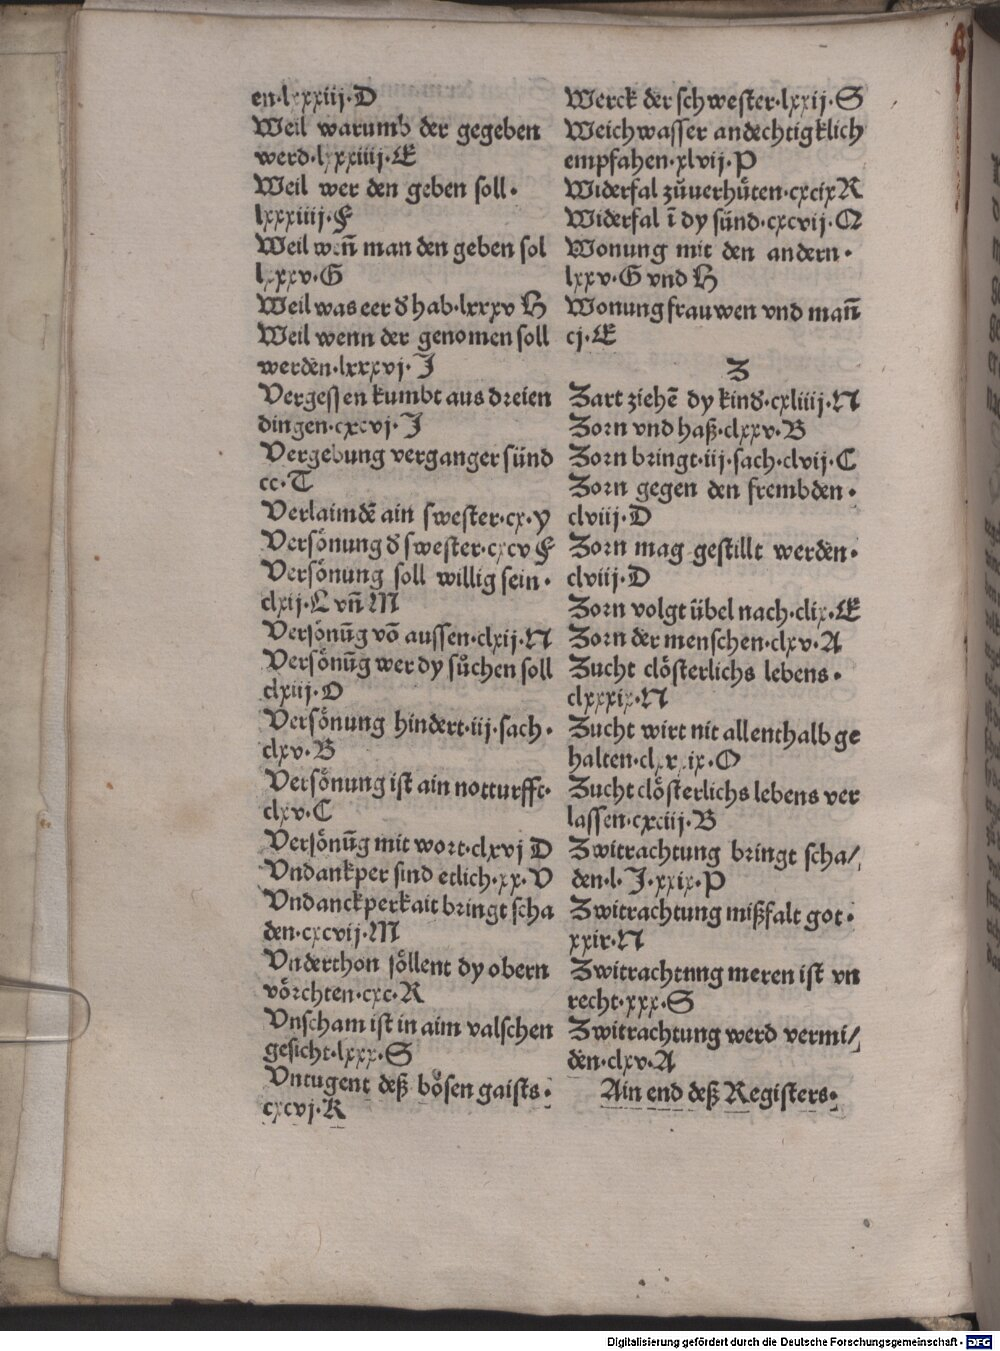 en·lxxxiij·D
Weil warumb der gegeben
werd·lxxxiiij·E
Weil wer den geben soll·
lxxxiiij·F
Weil weñ man den geben sol
lxxxv·G
Weil was eer dʼ hab·lxxxv H
Weil wenn der genomen soll
werden·lxxxvj·J
Vergessen kumbt aus dreien
dingen·cxcvj·J
Vergebung verganger sünd
cc·T
Verlaimdē ain swester·cx·y
Versönung dʼ swester·cxcv F
Versönung soll willig sein·
clxij·L vñ M
Versönūg vō aussen·clxij·N
Versönūg wer dy sůchen soll
clxiij·O
Versönung hindert·iij·sach·
clxv·B
Versönung ist ain notturfft·
clxv·C
Versönūg mit wort·clxvj D
Vndankper sind etlich·xx·V
Vndanckperkait bringt scha
den·cxcvij·M
Vnderthon söllent dy obern
vörchten·cxc·R
Vnscham ist in aim valschen
gesicht·lxxx·S
Vntugent deß bösen gaists·
cxcvj·K
Werck der schwester·lxxij·S
Weichwasser andechtigklich
empfahen·xlvij·P
Widerfal zůuerhüten·cxcix R
Widerfal ī dy sünd·cxcvij·Q
Wonung mit den andern·
lxxv·G vnd H
Wonung frauwen vnd mañ
cj·E
Z
Zart ziehē dy kindʼ·cxliiij·N
Zorn vnd haß·clxxv·B
Zorn bringt·iij·sach·clvij·C
Zorn gegen den frembden·
clviij·D
Zorn mag gestillt werden·
clviij·D
Zorn volgt übel nach·clix·E
Zorn der menschen·clxv·A
Zucht clösterlichs lebens·
clxxxix·N
Zucht wirt nit allenthalb ge
halten·clxxxix·O
Zucht clösterlichs lebens ver
lassen·cxciij·B
Zwitrachtung bringt scha/
den·l·J·xxix·P
Zwitrachtung mißfalt got·
xxix·N
Zwitrachtnng meren ist vn
recht·xxx·S
Zwitrachtung werd vermi/
den·clxv·A
Ain end deß Registers·
Digitalisierung gefördert durch die Deutsche Forschungsgemeinschaft - DFG